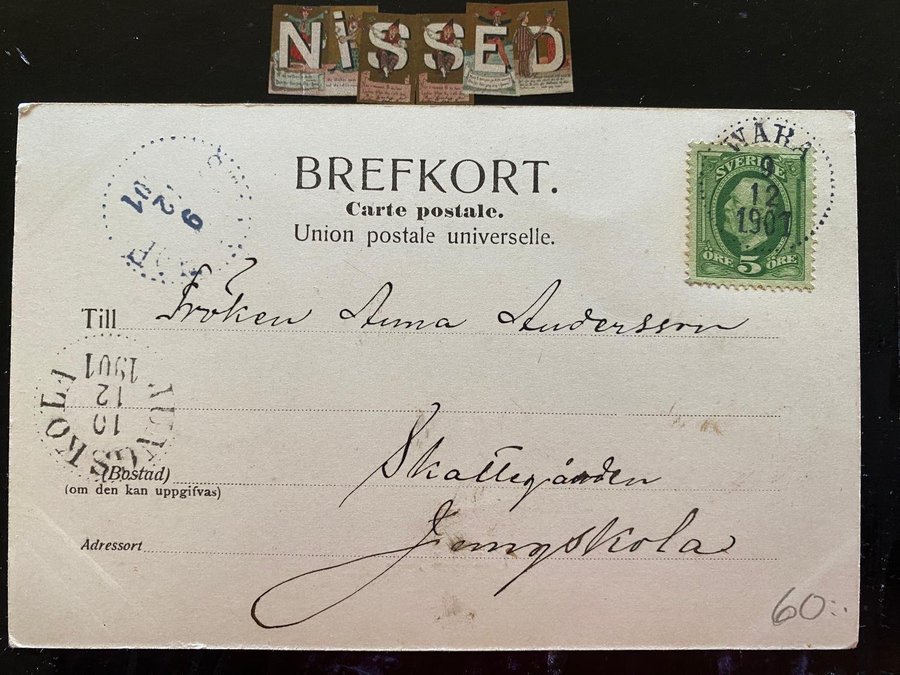 NiSSED
BREFKORT.
Carte postale.
Union postale universelle.
WARA
9
12
1901
SVERIGE
ÖRE 5 ÖRE
9
12
01
Till Fröken Anna Andersson
JUNGSKOLA
10
12
1901
(Bostad) Skattegården
(om den kan uppgifvas)
Adressort Jungskola
60:-